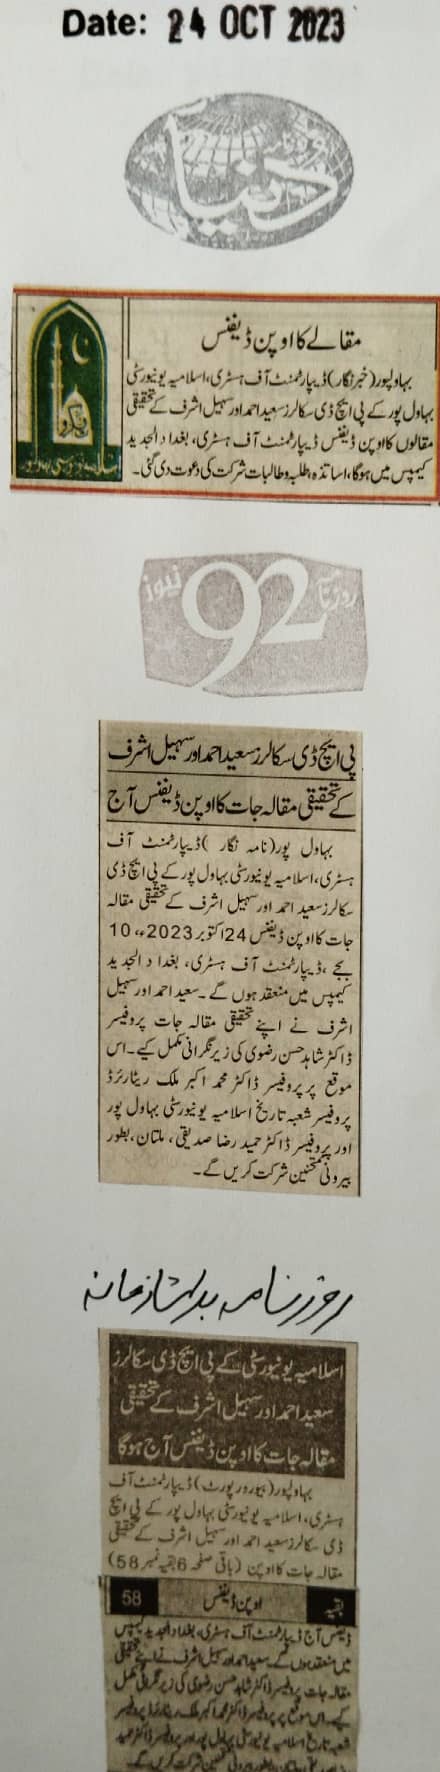 Date: 24 OCT 2023
روزنامہ دنیا
مقالے کا اوپن ڈیفنس
بہاولپور (خبر نگار) ڈیپارٹمنٹ آف ہسٹری، اسلامیہ یونیورسٹی
بہاول پور کے پی ایچ ڈی سکالرز سعید احمد اور سہیل اشرف کے تحقیقی
مقالوں کا اوپن ڈیفنس ڈیپارٹمنٹ آف ہسٹری، بغداد الجدید
کیمپس میں ہوگا، اساتذہ، طلبہ و طالبات شرکت کی دعوت دی گئی۔
روزنامہ 92 نیوز
پی ایچ ڈی سکالرز سعید احمد اور سہیل اشرف
کے تحقیقی مقالہ جات کا اوپن ڈیفنس آج
بہاول پور (نامہ نگار) ڈیپارٹمنٹ آف
ہسٹری، اسلامیہ یونیورسٹی بہاول پور کے پی ایچ ڈی
سکالرز سعید احمد اور سہیل اشرف کے تحقیقی مقالہ
جات کا اوپن ڈیفنس 24 اکتوبر 2023ء، 10
بجے، ڈیپارٹمنٹ آف ہسٹری، بغداد الجدید
کیمپس میں منعقد ہوں گے۔ سعید احمد اور سہیل
اشرف نے اپنے تحقیقی مقالہ جات پروفیسر
ڈاکٹر شاہد حسن رضوی کی زیر نگرانی مکمل کیے۔ اس
موقع پر پروفیسر ڈاکٹر محمد اکبر ملک ریٹائرڈ
پروفیسر شعبہ تاریخ اسلامیہ یونیورسٹی بہاول پور
اور پروفیسر ڈاکٹر حمید رضا صدیقی، ملتان، بطور
بیرونی ممتحنین شرکت کریں گے۔
روزنامہ
اسلامیہ یونیورسٹی کے پی ایچ ڈی سکالرز
سعید احمد اور سہیل اشرف کے تحقیقی
مقالہ جات کا اوپن ڈیفنس آج ہوگا
بہاولپور (بیورو رپورٹ) ڈیپارٹمنٹ آف
ہسٹری، اسلامیہ یونیورسٹی بہاول پور کے پی ایچ
ڈی سکالرز سعید احمد اور سہیل اشرف کے تحقیقی
مقالہ جات کا اوپن (باقی صفحہ 6 بقیہ نمبر 58)
بقیہ اوپن ڈیفنس 58
ڈیفنس آج ڈیپارٹمنٹ آف ہسٹری، بغداد الجدید کیمپس
میں منعقد ہوں گے۔ سعید احمد اور سہیل اشرف نے اپنے تحقیقی
مقالہ جات پروفیسر ڈاکٹر شاہد حسن رضوی کی زیر نگرانی مکمل
کیے۔ اس موقع پر پروفیسر ڈاکٹر محمد اکبر ملک ریٹائرڈ پروفیسر
شعبہ تاریخ اسلامیہ یونیورسٹی بہاول پور اور پروفیسر ڈاکٹر حمید